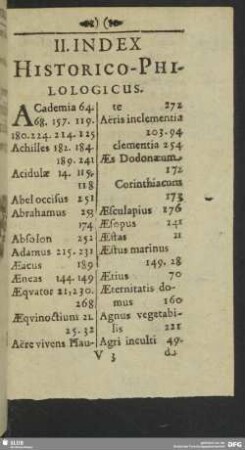 ) (
II. INDEX
HISTORICO-PHI-
LOLOGICUS.
ACademia 64.
68. 157. 119.
180. 224. 214. 125
Achilles 182. 184.
189. 241
Acidulæ 14. 115.
118
Abel occisus 251
Abrahamus 25
174
Absolon 252
Adamus 215. 231
Æacus 189
Æneas 144. 149
Æqvator 21. 230.
268
Æqvinoctium 21.
25. 32
Aëre vivens Plau-
te 272
Aëris inclementia
203. 94
clementia 254
Æs Dodonæum
172
Corinthiacum
173
Æsculapius 176
Æsopus 241
Æstas 21
Æstus marinus
149. 28
Ætius 70
Æternitatis do-
mus 160
Agnus vegetabi-
lis 221
Agri inculti 49.
V 3
do
SLUB
DFG